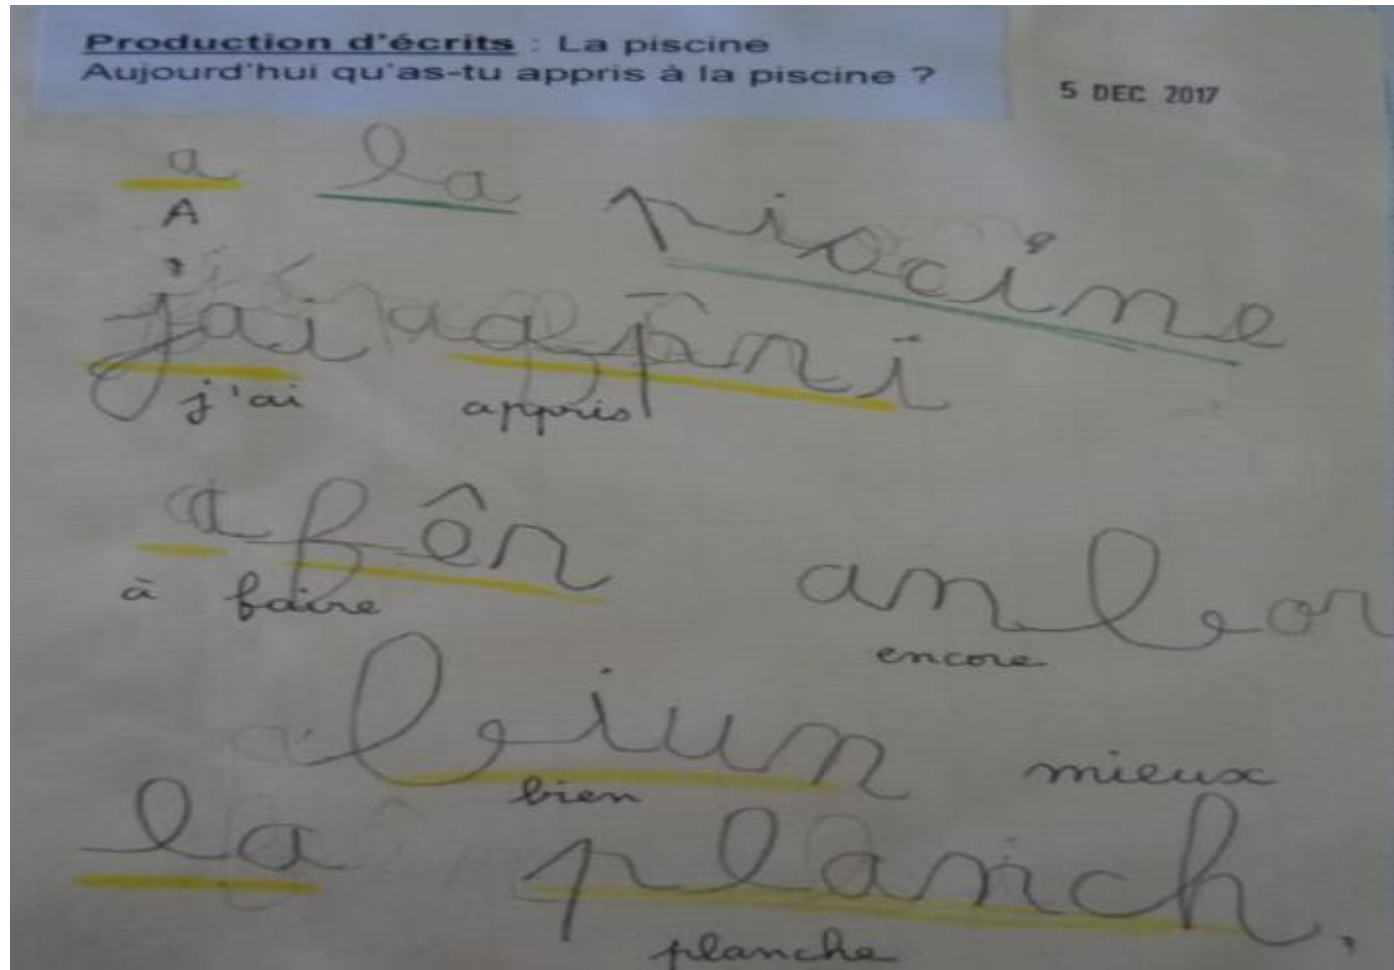 Production d'écrits : La piscine
Aujourd'hui qu'as-tu appris à la piscine ?
5 DEC 2017
a la piscine
A
jai appri
j'ai appris
a fêr anbor
à faire encore
biun mieux
bien
la planch.
planche